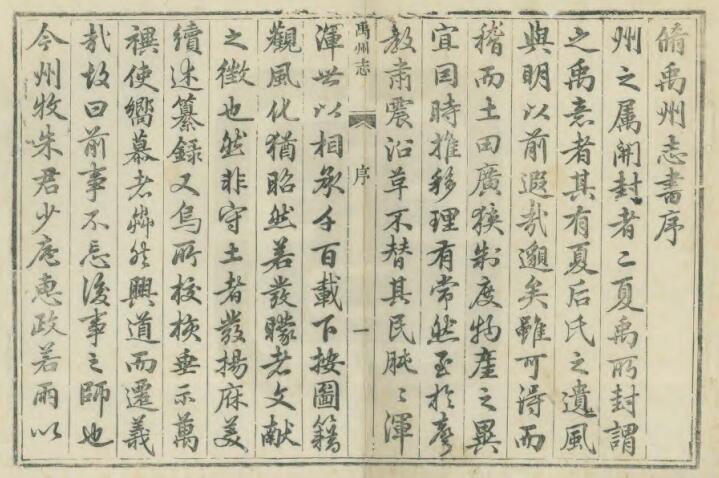 脩禹州志書序
州之属開封者二夏禹所封謂
之禹意者其有夏后氏之遺風
與明以前遐哉邈矣雖可得而
稽而土田廣狹制度物產之異
宜因時推移理有常然至於聲
教肅震沿革不替其民肫〻渾
禹州志
序
一
渾世以相承千百載下按圖籍
觀風化猶昭然若發矇者文献
之徵也然非守土者發揚庥美
續述纂録又烏所挍核垂示萬
禩使嚮慕者犂然興道而遷義
哉故曰前事不忘後事之師也
今州牧朱君少庵惠政若雨以